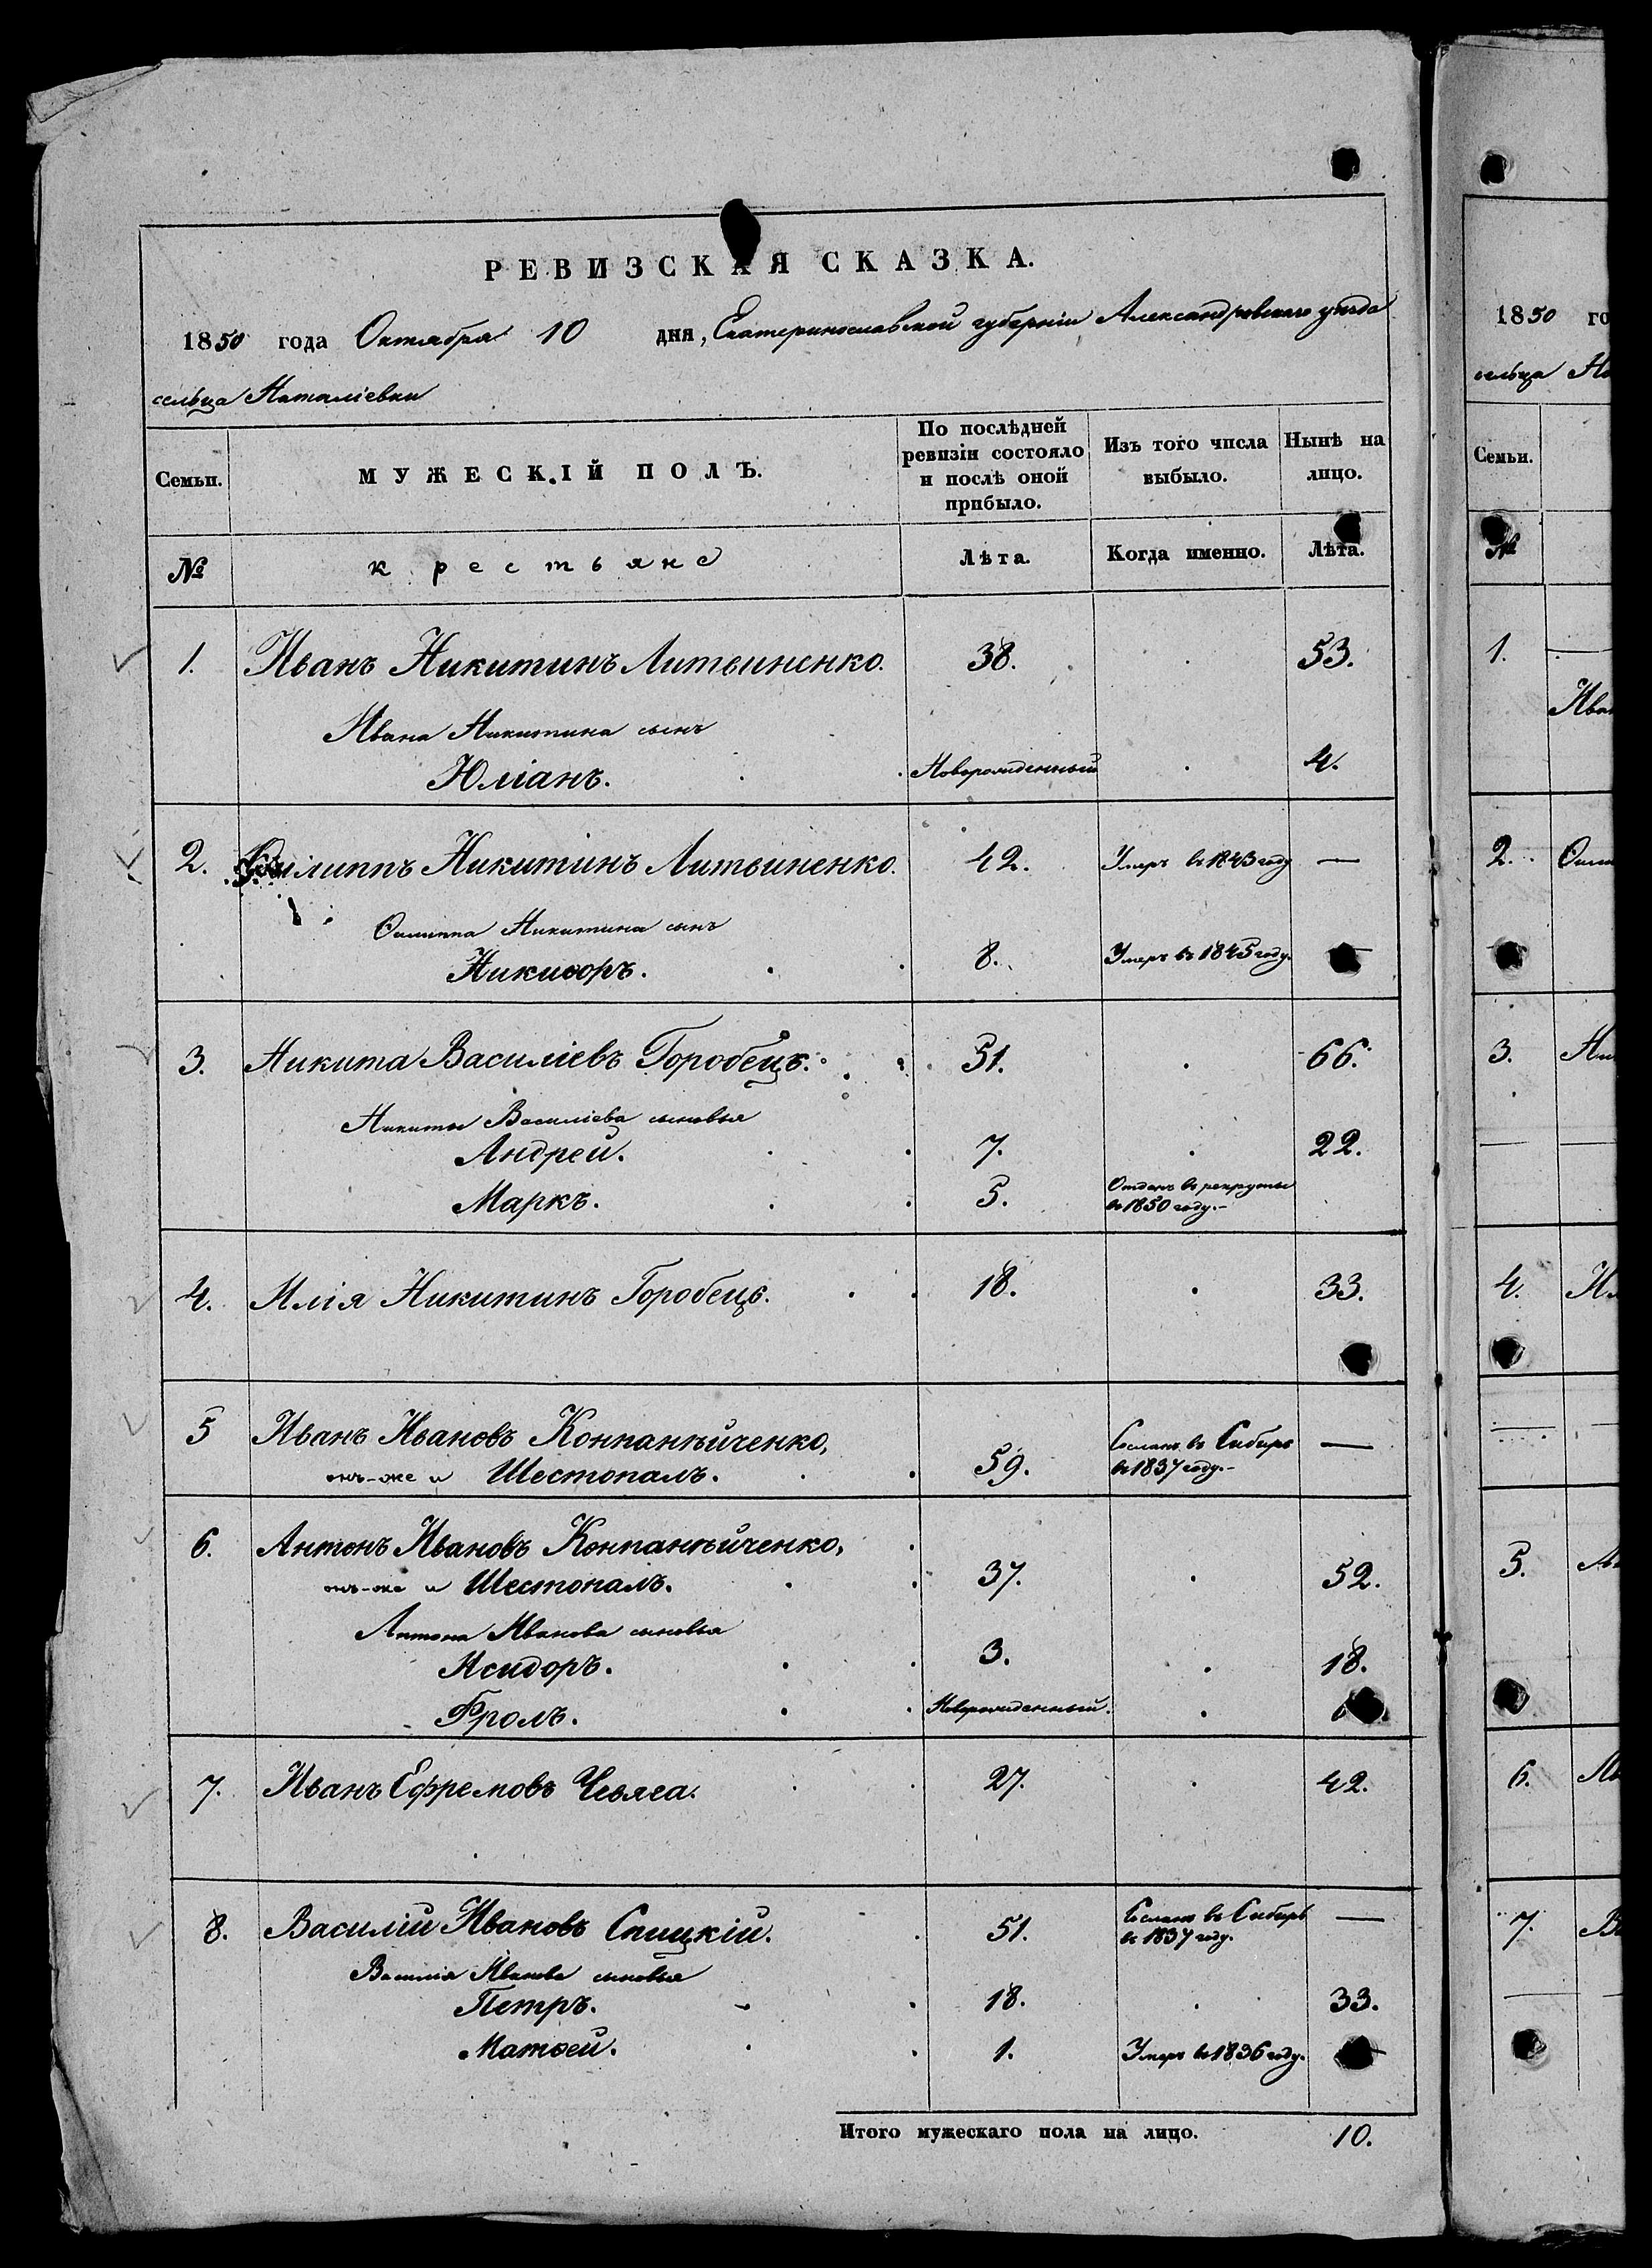 РЕВИЗСКАЯ СКАЗКА.
1850 года Октября 10 дня, Екатеринославской губерніи Александровскаго уѣзда
сельца Наталіевки
Семьи. МУЖЕСКІЙ ПОЛЪ. По послѣдней ревизіи состояло и послѣ оной прибыло. Изъ того числа выбыло. Нынѣ на лицо.
№ крестьяне Лѣта. Когда именно. Лѣта.
1. Иванъ Никитинъ Литвиненко. 38. 53.
Ивана Никитина сынъ
Юліанъ. Новорожденный 4.
2. Ѳилиппъ Никитинъ Литвиненко. 42. Умеръ въ 1843 году —
Ѳилиппа Никитина сынъ
Никиѳоръ. 8. Умеръ въ 1845 году. —
3. Никита Василіевъ Горобецъ. 51. 66.
Никиты Василіева сыновья
Андрей. 7. 22.
Маркъ. 5. Отданъ въ рекруты
въ 1850 году.-
4. Илія Никитинъ Горобецъ. 18. 33.
5 Иванъ Ивановъ Конпанѣйченко,
онъ-же и Шестопалъ. 59. Сосланъ въ Сибирь
въ 1837 году.- —
6. Антонъ Ивановъ Конпанѣйченко,
онъ-же и Шестопалъ. 37. 52.
Антона Иванова сыновья
Исидоръ. 3. 18.
Фролъ. Новорожденный.
7. Иванъ Ефремовъ 27. 42.
8. Василій Ивановъ Спицкій. 51. Сосланъ въ Сибирь
въ 1837 году. —
Василія Иванова сыновья
Петръ. 18. 33.
Матѳей. 1. Умеръ въ 1836 году. —
Итого мужескаго пола на лицо. 10.
1850 го
сельца На
Семьи.
№
1. —
Иван
2.
3. Ни
4. Ил
5.
6.
7.